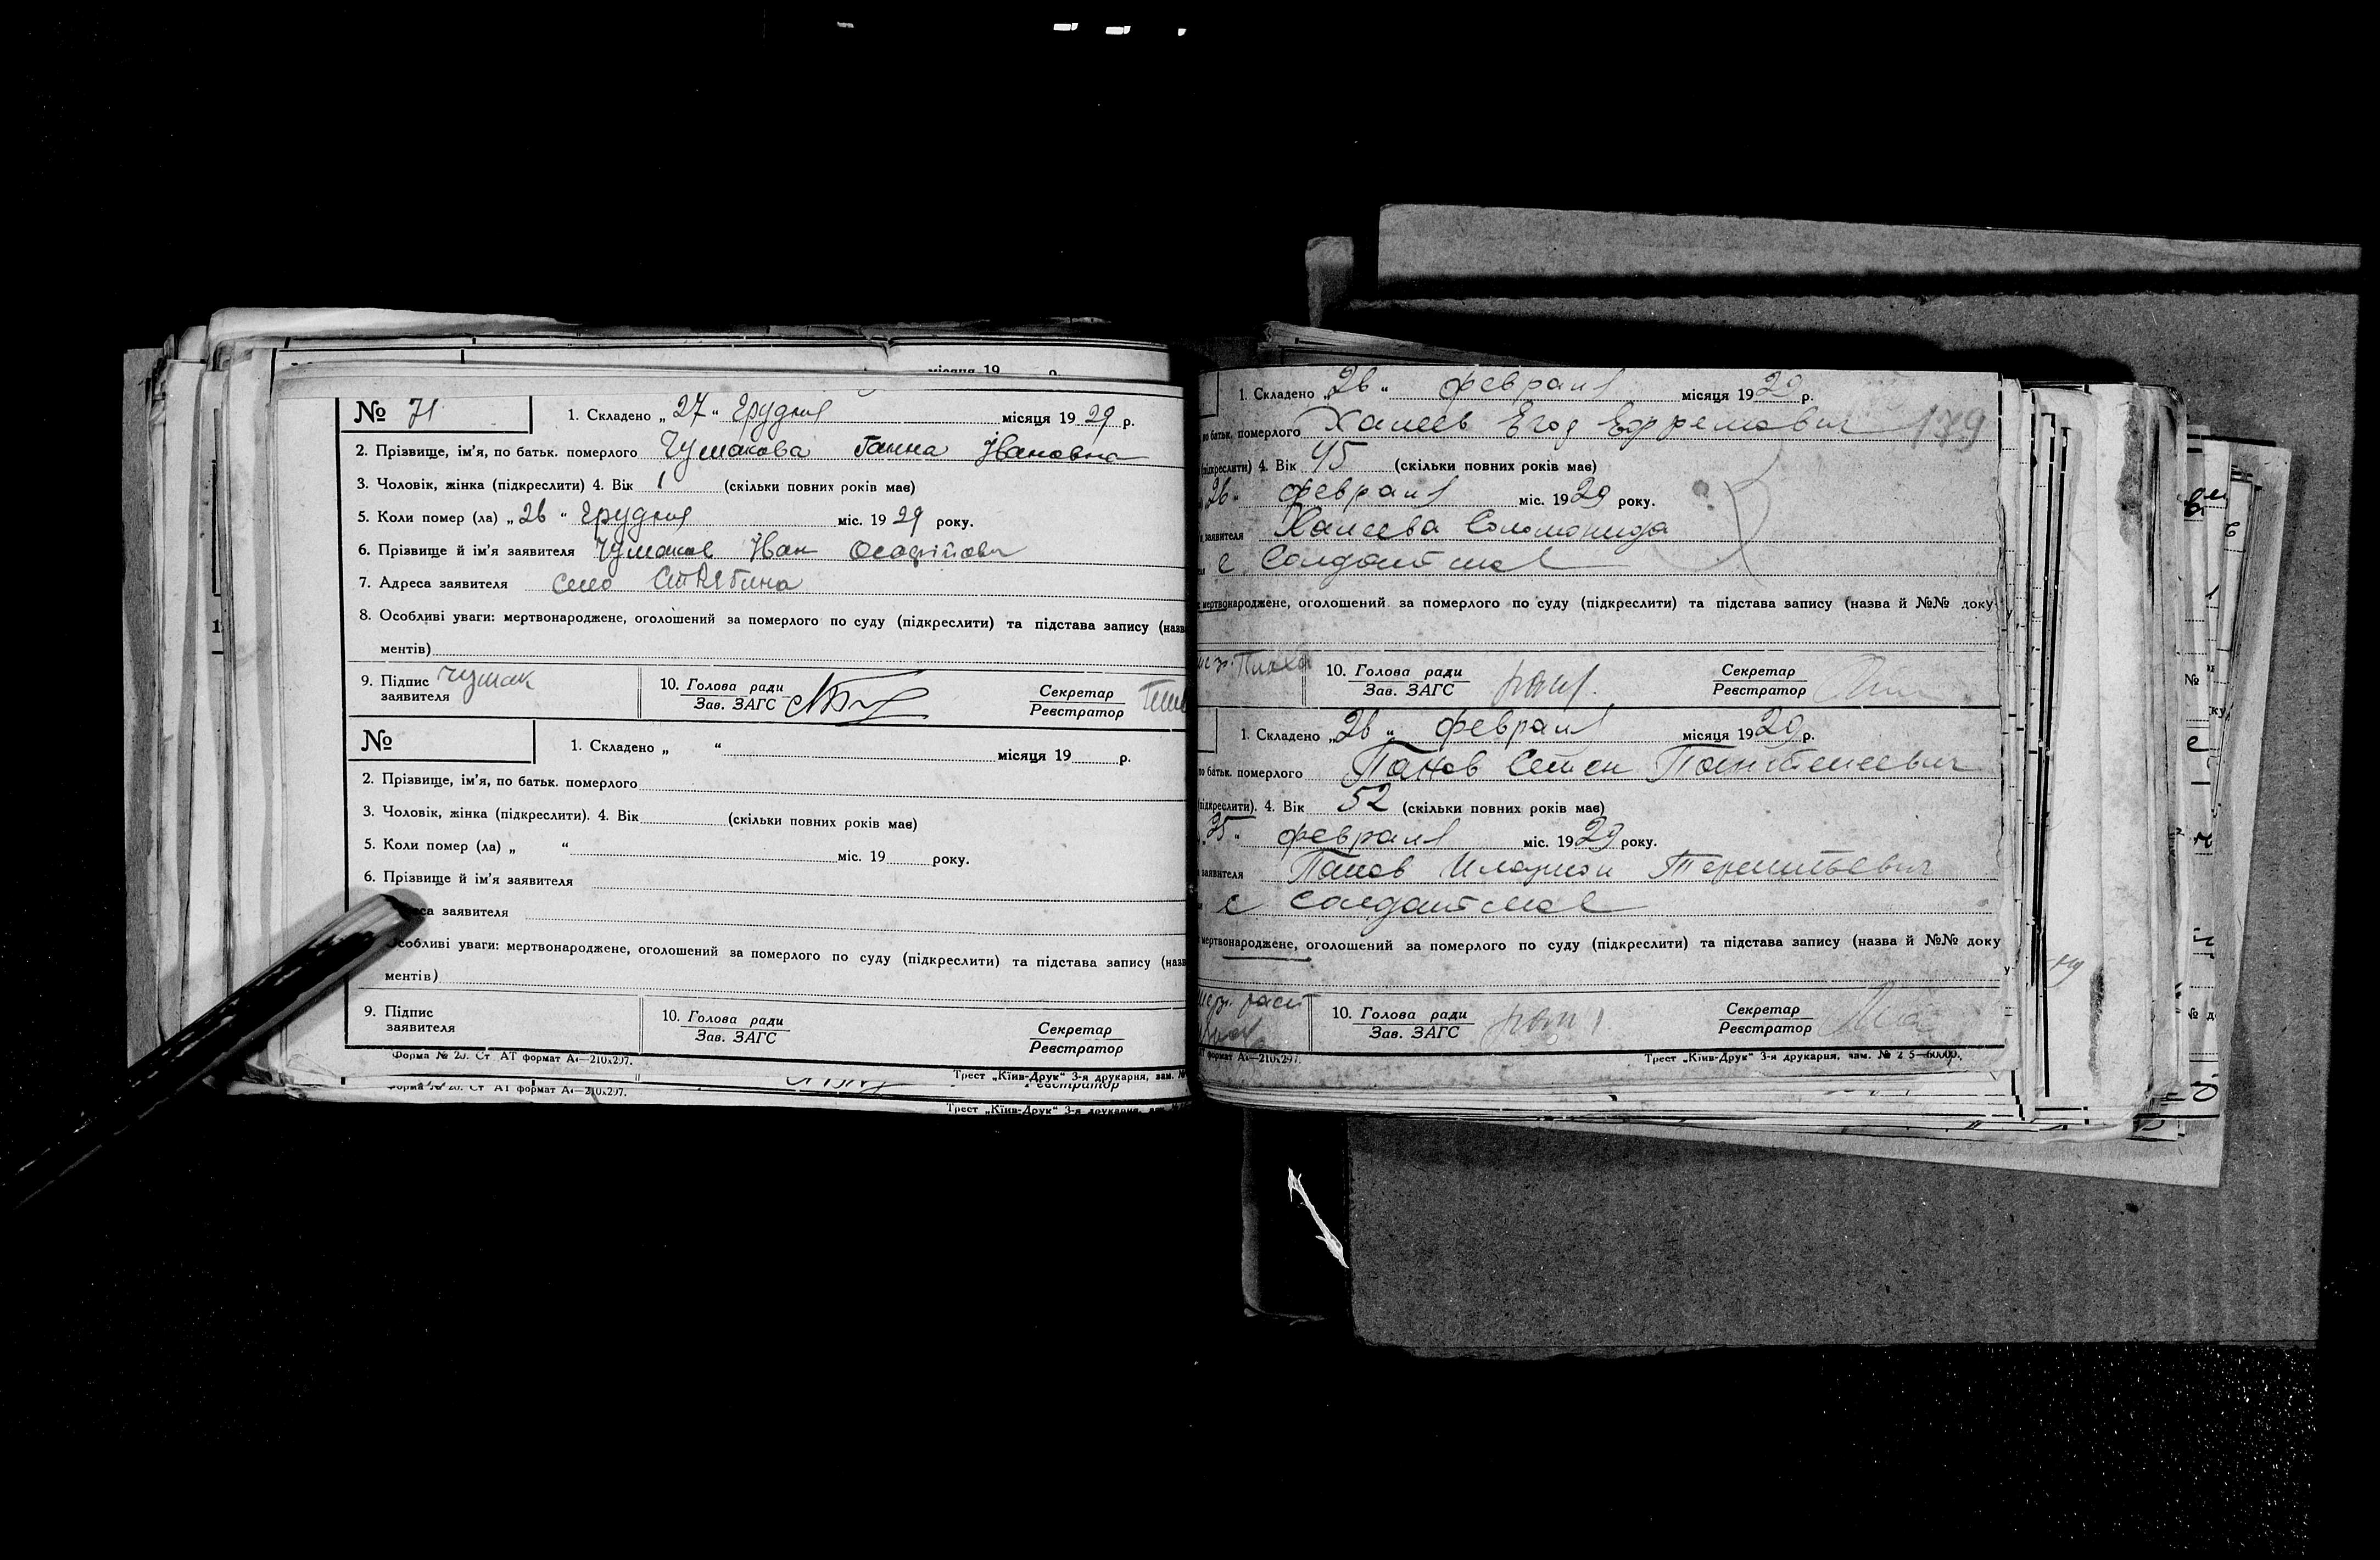 місяця 19 р.
№ 71
1. Складено „27“ Грудня місяця 1929 р.
2. Прізвище, ім'я, по батьк. померлого Чумакова Ганна Івановна
3. Чоловік, жінка (підкреслити) 4. Вік 1 (скільки повних років має)
5. Коли помер (ла) „26“ Грудня міс. 1929 року.
6. Прізвище й ім'я заявителя Чумаков Іван
7. Адреса заявителя село
8. Особливі уваги: мертвонароджене, оголошений за померлого по суду (підкреслити) та підстава запису (назв
ментів)
9. Підпис заявителя Чумак
10. Голова ради Зав. ЗАГС
Секретар Реєстратор
№
1. Складено „ “ місяця 19 р.
2. Прізвище, ім'я, по батьк. померлого
3. Чоловік, жінка (підкреслити). 4. Вік (скільки повних років має)
5. Коли помер (ла) „ “ міс. 19 року.
6. Прізвище й ім'я заявителя
са заявителя
Особливі уваги: мертвонароджене, оголошений за померлого по суду (підкреслити) та підстава запису (назв
ментів)
9. Підпис заявителя
10. Голова ради Зав. ЗАГС
Секретар Реєстратор
Форма № 20. Ст АТ формат А4—210x297.
Трест „Київ-Друк“ 3-я друкарня, зам. №
Форма № 20. Ст АТ формат А4—210x297.
Реєстратор
Трест „Київ-Друк“ 3-я друкарня, зам.
1. Складено „26“ февраля місяця 1929 р.
по батьк. померлого Ханеев Егор Ефремович 179
(підкреслити) 4. Вік 45 (скільки повних років має)
26“ февраля міс. 1929 року.
заявителя Ханеева Соломонида
с Солдатское
мертвонароджене, оголошений за померлого по суду (підкреслити) та підстава запису (назва й №№ доку
10. Голова ради Зав. ЗАГС
Секретар Реєстратор
1. Складено „26“ февраля місяця 1929 р.
по батьк. померлого Панов Семен Пантелеевич
підкреслити). 4. Вік 52 (скільки повних років має)
„25“ февраля міс. 1929 року.
заявителя Панов Иларион Терентьевич
с Солдатское
мертвонароджене, оголошений за померлого по суду (підкреслити) та підстава запису (назва й №№ доку
10. Голова ради Зав. ЗАГС
Секретар Реєстратор
АТ формат А4—210x297.
Трест „Київ-Друк“ 3-я друкарня, зам. № 2 5—60000.